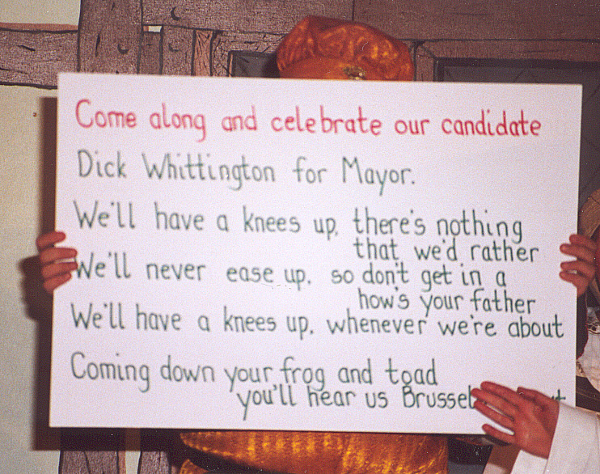 Come along and celebrate our candidate
Dick Whittington for Mayor.
We'll have a knees up, there's nothing
that we'd rather
We'll never ease up, so don't get in a
how's your father
We'll have a knees up, whenever we're about
Coming down your frog and toad
you'll hear us Brussel